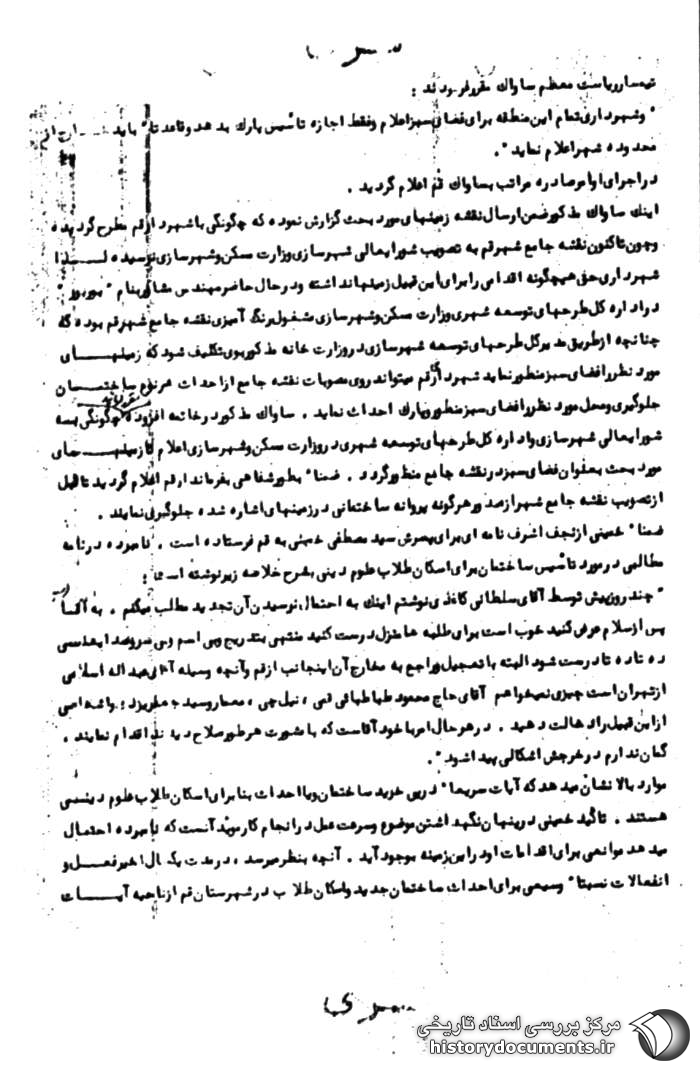 سری
تیمسار ریاست معظم ساواك مقرر فرمودند :
" و شهرداری تمام این منطقه برای فضای سبز اعلام و فقط اجازه تأسیس پارك بدهد و قاعدتا" باید خارج از
محدوده شهر اعلام نماید ".
در اجرای اوامر صادره مراتب بساواك قم اعلام گردید .
اینك ساواك مذكور ضمن ارسال نقشه زمینهای مورد بحث گزارش نموده كه چگونگی با شهردار قم مطرح گردیده
و چون تاكنون نقشه جامع شهر قم به تصویب شورایعالی شهرسازی وزارت مسكن و شهرسازی نرسیده لــذا
شهرداری حق هیچگونه اقدامی را برای این قبیل زمینها نداشته و در حال حاضر مهندس مشاور بنام
در اداره كل طرحهای توسعه شهری وزارت مسكن و شهرسازی مشغول رنگ آمیزی نقشه جامع شهر قم بوده كه
چنانچه از طریق مدیركل طرحهای توسعه شهرسازی در وزارت خانه مذكور بوی تكلیف شود كه زمینهـای
مورد نظر را فضای سبز منظور نماید شهرداری قم میتواند روی مصوبات نقشه جامع از احداث هر نوع ساختمـان
جلوگیری و محل مورد نظر را فضای سبز منظور و پارك احداث نماید . ساواك مذكور در خاتمه افزوده چگونگی بـه
شورایعالی شهرسازی و اداره كل طرحهای توسعه شهری در وزارت مسكن و شهرسازی اعلام تا زمینهـای
مورد بحث بعنوان فضای سبز در نقشه جامع منظور گردد . ضمنا" بطور شفاهی بفرماندار قم اعلام گردید تا قبل
از تصویب نقشه جامع شهر از صدور هرگونه پروانه ساختمانی در زمینهای اشاره شده جلوگیری نمایند .
ضمنا" خمینی از نجف اشرف نامه ای برای پسرش سید مصطفی خمینی به قم فرستاده است . نامبرده در نامه
مطالبی در مورد تأسیس ساختمان برای اسكان طلاب علوم دینی بشرح خلاصه زیر نوشته است :
" چند روز پیش توسط آقای سلطانی كاغذی نوشتم اینك به احتمال نرسیدن آن تجدید مطلب میكنم . به آقـا
پس از سلام عرض كنید خوب است برای طلبه ها منزل درست كنید منتهی بتدریج و بی اسم و بی سر و صدا
ده تا ده تا درست شود البته با تعجیل و راجع به مخارج آن اینجانب از قم و آنچه وسیله آقای عبداله اسلامی
از تهران است چیزی نمیخواهم آقای حاج محمود طباطبائی قمی ،
از این قبیل را دخالت دهید . در هر حال امر با خود آقاست كه با مشورت هر طور صلاح دیدند اقدام نمایند .
گمان ندارم در خرجش اشكالی پیدا شود ".
موارد بالا نشان میدهد كه آیات صریحا" در پی خرید ساختمان و یا احداث بنا برای اسكان طلاب علوم دینـی
هستند . تأكید خمینی در پنهان نگهداشتن موضوع و سرعت عمل در انجام كار موید آنست كه نامبرده احتمال
میدهد موانعی برای اقدامات او در این زمینه بوجود آید . آنچه بنظر میرسد ، در مدت یكسال اخیر فعـل و
انفعالات نسبتا" وسیعی برای احداث ساختمان جدید و اسكان طلاب در شهرستان قم از ناحیه آیـــات
سری
مرکز بررسی اسناد تاریخی
historydocuments.ir